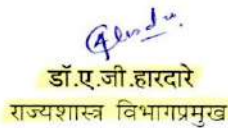 डॉ.ए.जी.हारदारे
राज्यशास्त्र विभागप्रमुख